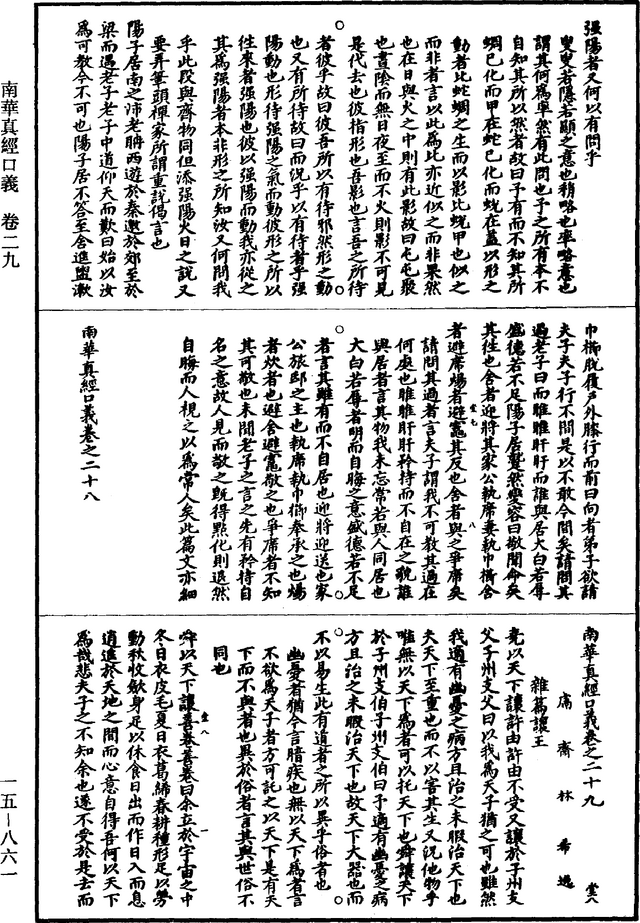 南華真經口義 卷二九
一五—八六一
强陽者又何以有問乎
叟叟者隱若顯之意也稍略也率略意也
謂其何為率然有此問也予之所有本不
自知其所以然者故曰予有而不知其所
蜩已化而甲在蛇已化而蛻在蓋以形之
動者比蛇蜩之生而以影比蛻甲也似之
而非者言以此為比亦近似之而非果然
也在日與火之中則有此影故曰屯屯聚
也晝陰而無日夜至而不火則影不可見
是代去也彼指形也吾影也言吾之所待
者彼乎故曰彼吾所以有待邪然形之動
也又有所待故曰而況乎以有待者乎强
陽動也形待强陽之氣而動彼形之所以
往來者强陽也彼以强陽而動我亦從之
其為强陽者本非形之所知汝又何問我
乎此段與齊物同但添强陽火日之說又
要弄筆頭禪家所謂重說偈言也
陽子居南之沛老聃西遊於秦邀於郊至於
梁而遇老子老子中道仰天而歎曰始以汝
為可教今不可也陽子居不答至舍進盥漱
巾櫛脫屨戶外膝行而前曰向者弟子欲請
夫子夫子行不間是以不敢今間矣請問其
過老子曰而睢睢盱盱而誰與居大白若辱
盛德若不足陽子居蹵然變容曰敬聞命矣
其往也舍者迎將其家公執席妻執巾櫛舍
者避席煬者避竈其反也舍者與之爭席矣
請問其過者言夫子謂我不可教其過在
何處也睢睢盱盱矜持而不自在之貌誰
與居者言其物我未忘常若與人同居也
大白若辱者明而自晦之意盛德若不足
者言其雖有而不自居也迎將迎送也家
公旅邸之主也執席執巾櫛奉承之也煬
者炊者也避舍避竈敬之也爭席者不知
其可敬也未聞老子之言之先有矜持自
名之意故人見而敬之既得點化則退然
自晦而人視之以為常人矣此篇文亦細
南華真經口義卷之二十八
南華真經口義卷之二十九 堂八
鬳齋林希逸
雜篇讓王
堯以天下讓許由許由不受又讓於子州支
父子州支父曰以我為天子猶之可也雖然
我適有幽憂之病方且治之未暇治天下也
夫天下至重也而不以害其生又況他物乎
唯無以天下為者可以托天下也舜讓天下
於子州支伯子州支伯曰予適有幽憂之病
方且治之未暇治天下也故天下大器也而
不以易生此有道者之所以異乎俗者也
幽憂者猶今言暗疾也無以天下為者言
不欲為天子者方可託之以天下是有天
下而不與者也異於俗者言其與世俗不
同也
舜以天下讓善卷善卷曰余立於宇宙之中
冬日衣皮毛夏日衣葛絺春耕種形足以勞
動秋收斂身足以休食日出而作日入而息
逍遙於天地之間而心意自得吾何以天下
為哉悲夫子之不知余也遂不受於是去而